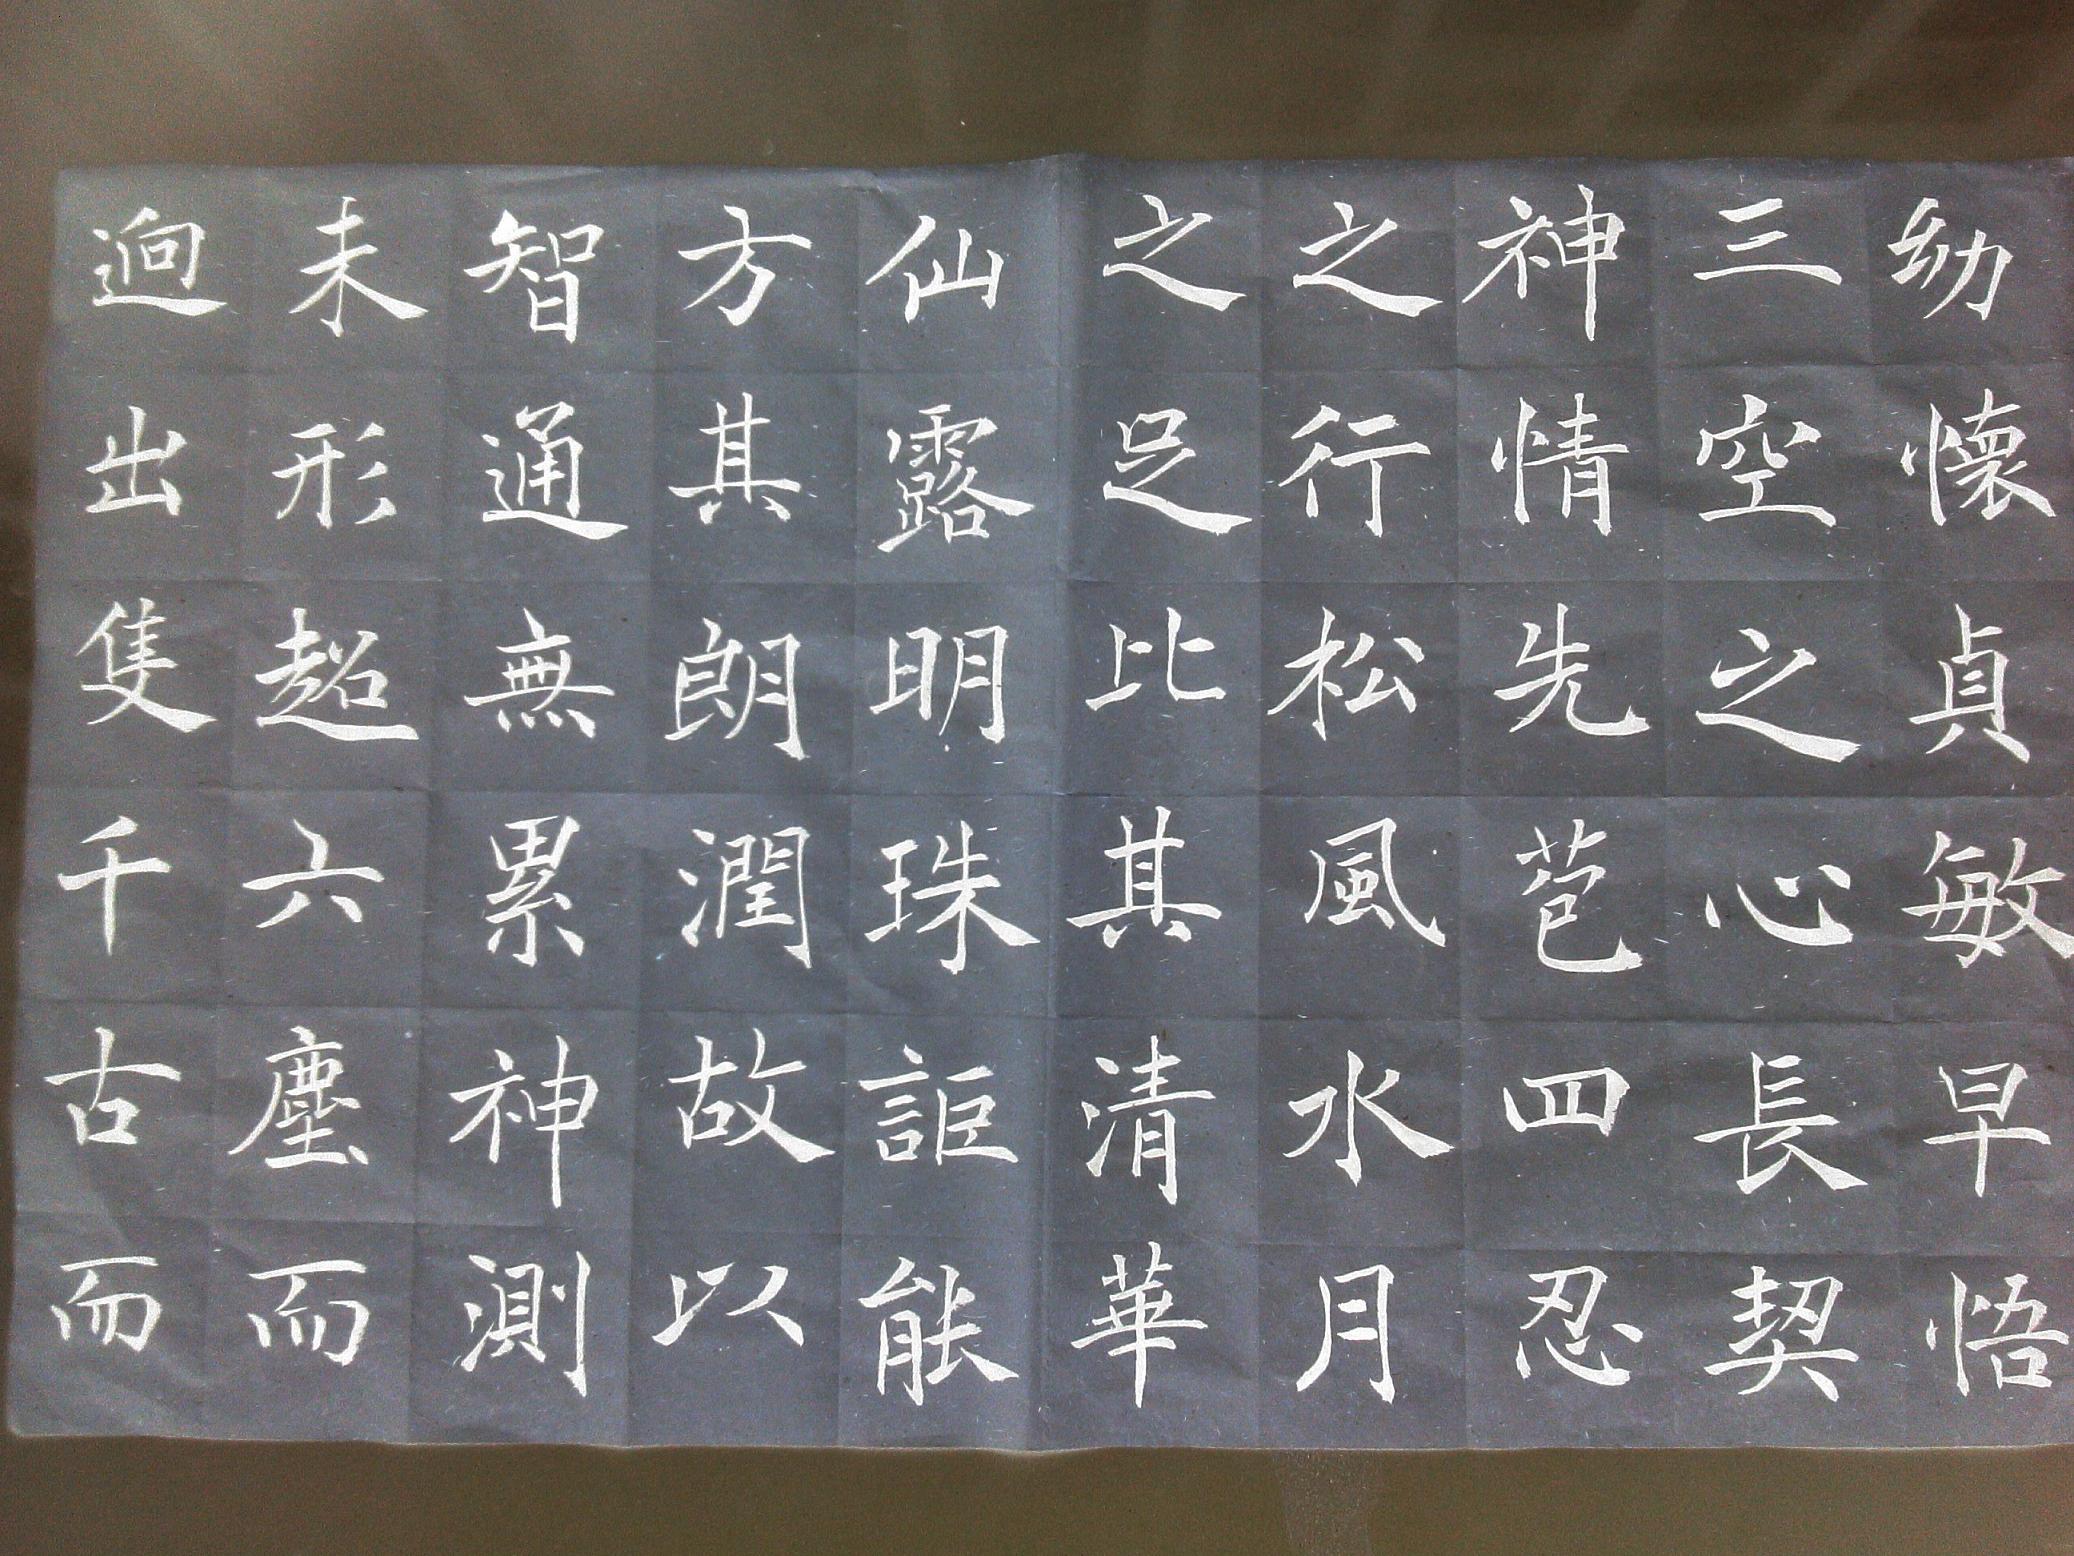 幼懷貞敏早悟
三空之心長契
神情先苞四忍
之行松風水月
之足比其清華
仙露明珠詎能
方其朗潤故以
智通無累神測
未形超六塵而
迥出隻千古而